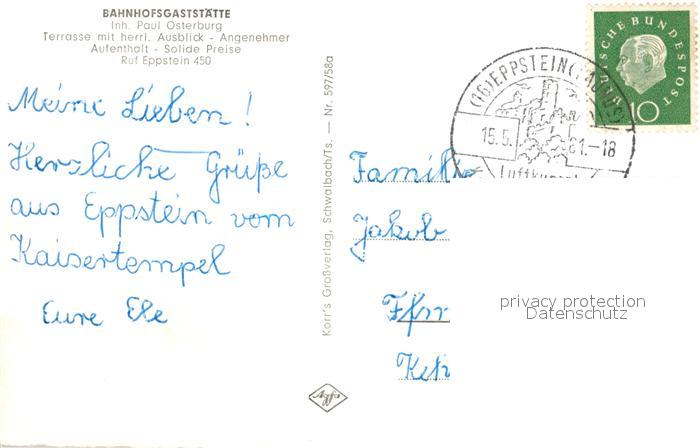 BAHNHOFSGASTSTÄTTE
Inh. Paul Osterburg
Terrasse mit herrl. Ausblick - Angenehmer
Aufenthalt - Solide Preise
Ruf Eppstein 450
Meine Lieben!
Herzliche Grüße
aus Eppstein vom
Kaisertempel
Eure Ele
Korr's Großverlag, Schwalbach/Ts. — Nr. 597/58a
Agfa
DEUTSCHE BUNDESPOST
10
(16) EPPSTEIN (TAUNUS)
15.5. 61.-18
Luftkurort
Familie
Jakob
Ffm
privacy protection
Datenschutz